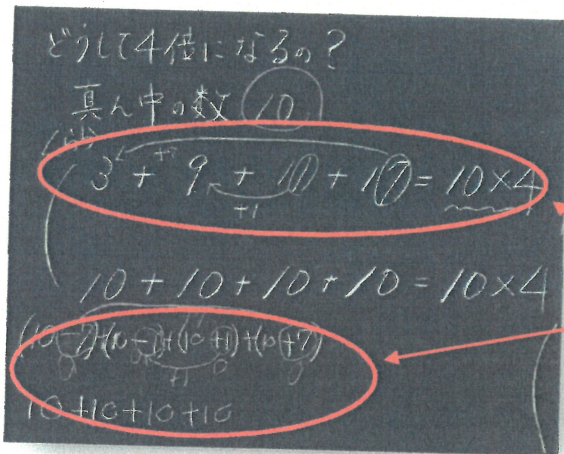 どうして4倍になるの?
真ん中の数 10
+7
3 + 9 + 11 + 17 = 10×4
+1
10 + 10 + 10 + 10 = 10×4
(10-7)+(10-1)+(10+1)+(10+7)
0 0 0 0
+1
10+10+10+10